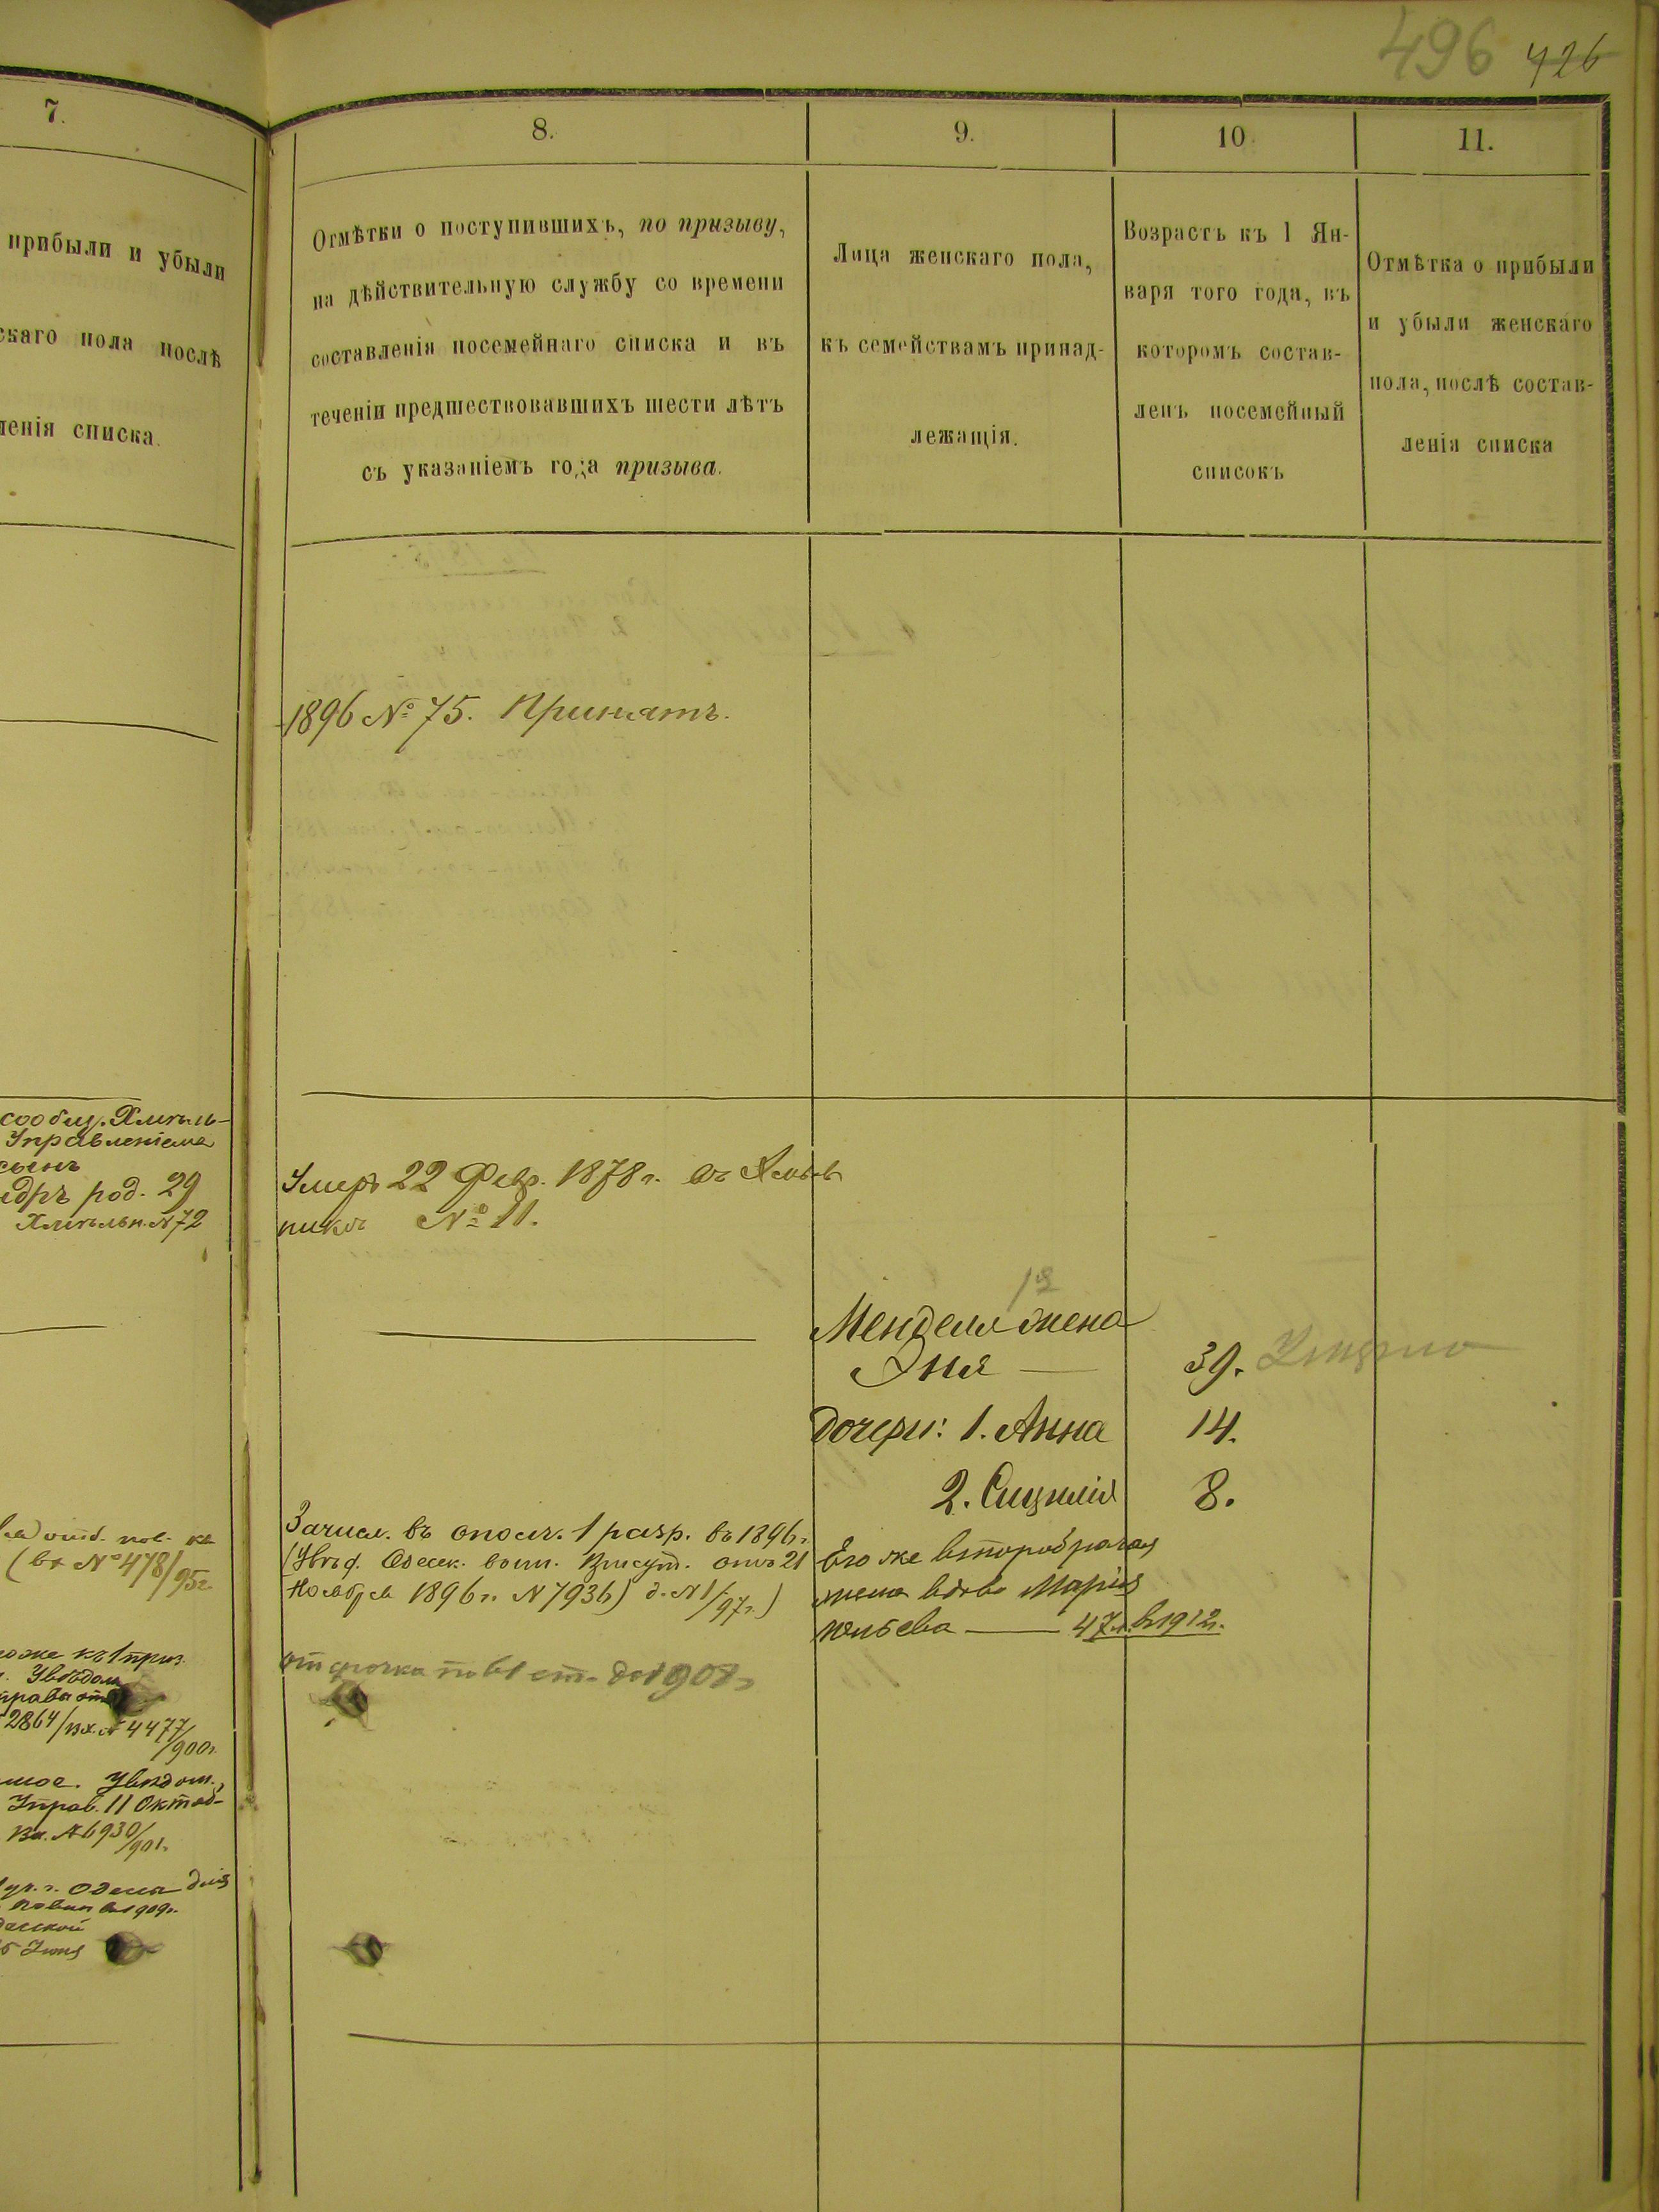 496 426
7.
прибыли и убыли
скаго пола послѣ
ленія списка.
сообщ. Хмѣль-
Управленіемъ
сынъ
род. 29
Хмѣльн. № 72
(вх № 478/95г.
къ 1 приз.
Увѣдом.
2864/вх. № 4477/900г.
Увѣдом.,
Управ. 11 Октяб-
Вх. № 6930/901г.
г. Одесса для
1909г.
8.
Отмѣтки о поступившихъ, по призыву,
на дѣйствительную службу со времени
составленія посемейнаго списка и въ
теченіи предшествовавшихъ шести лѣтъ
съ указаніемъ года призыва.
1896 № 75. Принятъ.
Умеръ 22 Февр. 1878 г. въ Хмѣль-
никѣ № 11.
Зачисл. въ ополч. 1 разр. въ 1896 г.
(Увѣд. Одесск. воин. Присут. отъ 21
Ноября 1896 г. № 7936) д. № 1/97 г.)
отсрочка по 61 ст. до 1908 г
9.
Лица женскаго пола,
къ семействамъ принад-
лежащія.
Менделя жена
Эня —
дочери: 1. Анна
2. Сицилія
Его же второбрачная
жена вдова Марія
Юльева — 47 л. въ 1912 г.
10.
Возрастъ къ 1 Ян-
варя того года, въ
которомъ состав-
ленъ посемейный
списокъ
39.
14.
8.
11.
Отмѣтка о прибыли
и убыли женскаго
пола, послѣ состав-
ленія списка
Умерла